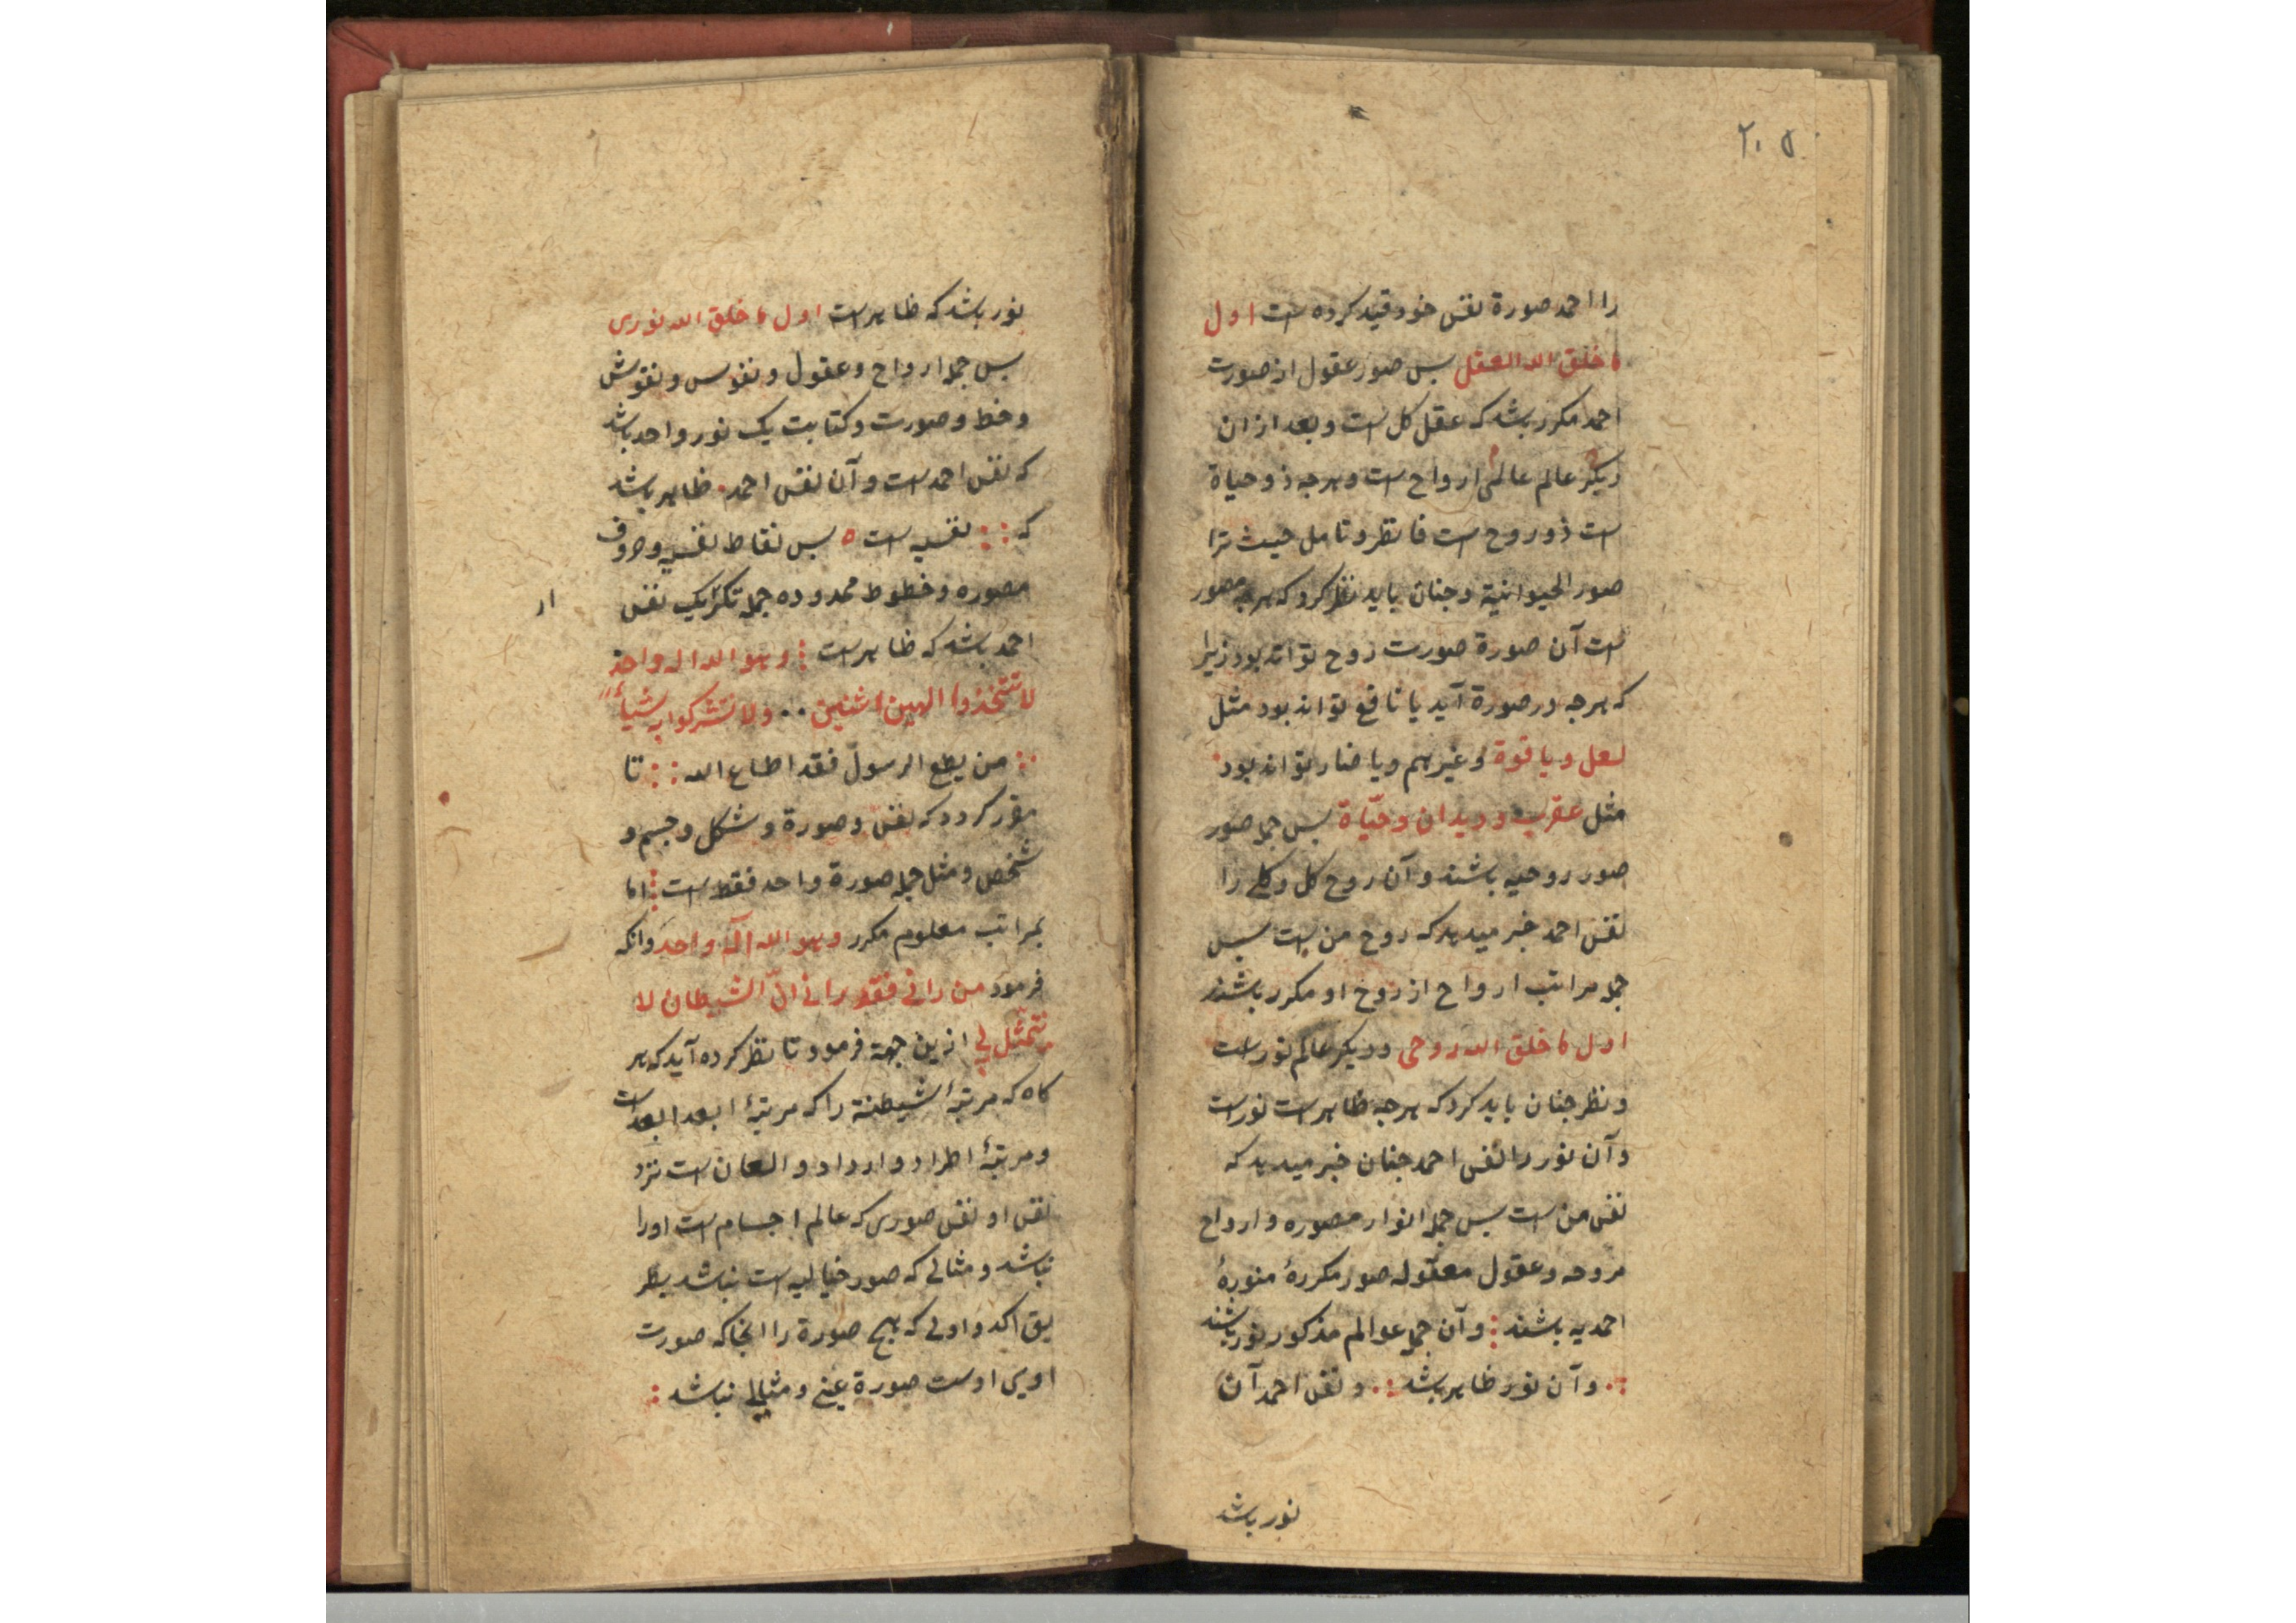 ۲۰۵
را احمد صورة نفس خود قید کرده است اول
ما خلق الله العقل بس صور عقول از صورت
احمد مکرر باشد که عقل کل است و بعد از ان
دیکر عالم عالم ارواح است و هرجه ذو حیاة
است ذو روح است فانظر و تامل حیث ترا
صور الحیوانیة و جنان باید نظر کرد که هرجه مصور
است آن صورة صورت روح تواند بود زیرا
که هرجه در صورة آید یا نافع تواند بود مثل
لعل و یاقوة و غیرهم و یا ضار تواند بود
مثل عقرب و دیدان و حیّاة بس جمله صور
صور روحیه باشند و آن روح کل و کلی را
نفس احمد خبر میدهد که روح من است بس
جمله مراتب ارواح از روح او مکرر باشند
اول ما خلق الله روحی و دیکر عالم نور است
و نظر جنان باید کرد که هرجه ظاهر است نور است
و آن نور را نفس احمد جنان خبر میدهد که
نفس من است بس جمله انوار مصوره و ارواح
مروحه و عقول معقوله صور مکررهٔ منورهٔ
احمدیه باشند و آن جمله عوالم مذکور نور باشند
و آن نور ظاهر باشد و نفس احمد آن
نور باشد
نور باشد که ظاهر است اول ما خلق الله نوری
بس جمله ارواح و عقول و نفوس و نقوش
و خط و صورت و کتابت یک نور واحد باشد
که نفس احمد است و آن نفس احمد ظاهر باشد
که نفسیه است ه بس نقاط نفسیه و حروف
مصوره و خطوط محدوده جمله تکرار یک نفس
احمد باشد که ظاهر است و هو الله اله واحد
لا تتخذوا الهین اثنین ولا تشرکوا به شیأ
من یطع الرسول فقد اطاع الله تا
مقرر کردد که نفس و صورة و شکل و جسم و
شخص و مثل جمله صورة واحد فقط است اما
بمراتب معلوم مکرر و هو الله آله واحد و انکه
فرمود من رانی فقد رانی انّ الشیطان لا
یتمثّل بی ازین جهة فرمود تا نظر کرده آید که هر
کاه که مرتبهٔ شیطنة را که مرتبهٔ ابعد ابعد است
و مرتبهٔ اطراد و ارداد و العان است نزد
نفس او نفس صوری که عالم اجسام است او را
نباشد و مثالی که صور خیالیه است نباشد بطر
یق اکد و اولی که هیج صورة را انجا که صورت
اویی اوست صورة عینی و مثالی نباشد